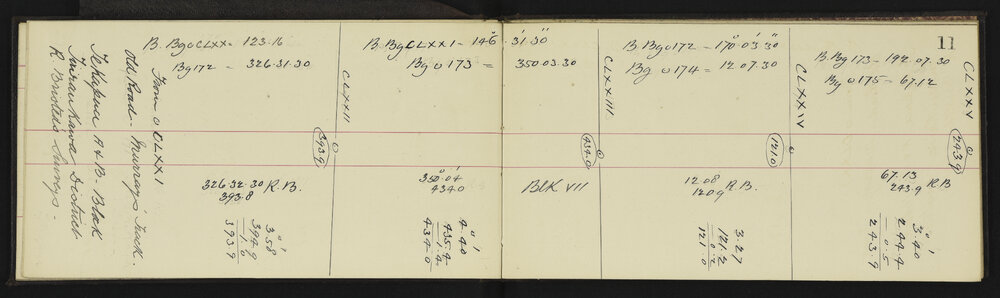 11
B. Bg o CLXX = 123.16
Bg 172 = 326.31.30
B. Bg CLXXI - 146.31.30
Bg o 173 = 350.03.30
B Bg o 172 - 170.03.30
Bg o 174 = 12.07.30
B. Bg 173 - 192.07.30
Bg o 175 - 67.12
CLXXII
CLXXIII
CLXXIV
CLXXV
393.9
434.0
121.0
243.9
From o CLXXI
Old Road. Murray's Track.
Te Kapua A & B. Block
District
R. Survey.
326.32.30 R.B.
393.8
350.04
434.0
Blk VII
12.08 R.B.
120.9
67.13 R B
243.9
3.58
394.9
1.0
393.9
4.40
435.4
1.4
434.0
3.27
121.2
0.2
121.0
3.40
244.4
0.5
243.9